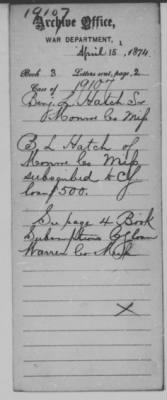 19107
Archive Office,
WAR DEPARTMENT,
April 15, 1874.
Book 3 Letters sent, page, 2
Case of 19107
Benj. L Hatch Sr
Monroe Co Miss
B L Hatch of
Monroe Co Miss
subscribed to C
loan $500.
See page 4 Book
Subscriptions C loan
Warren Co Miss
X